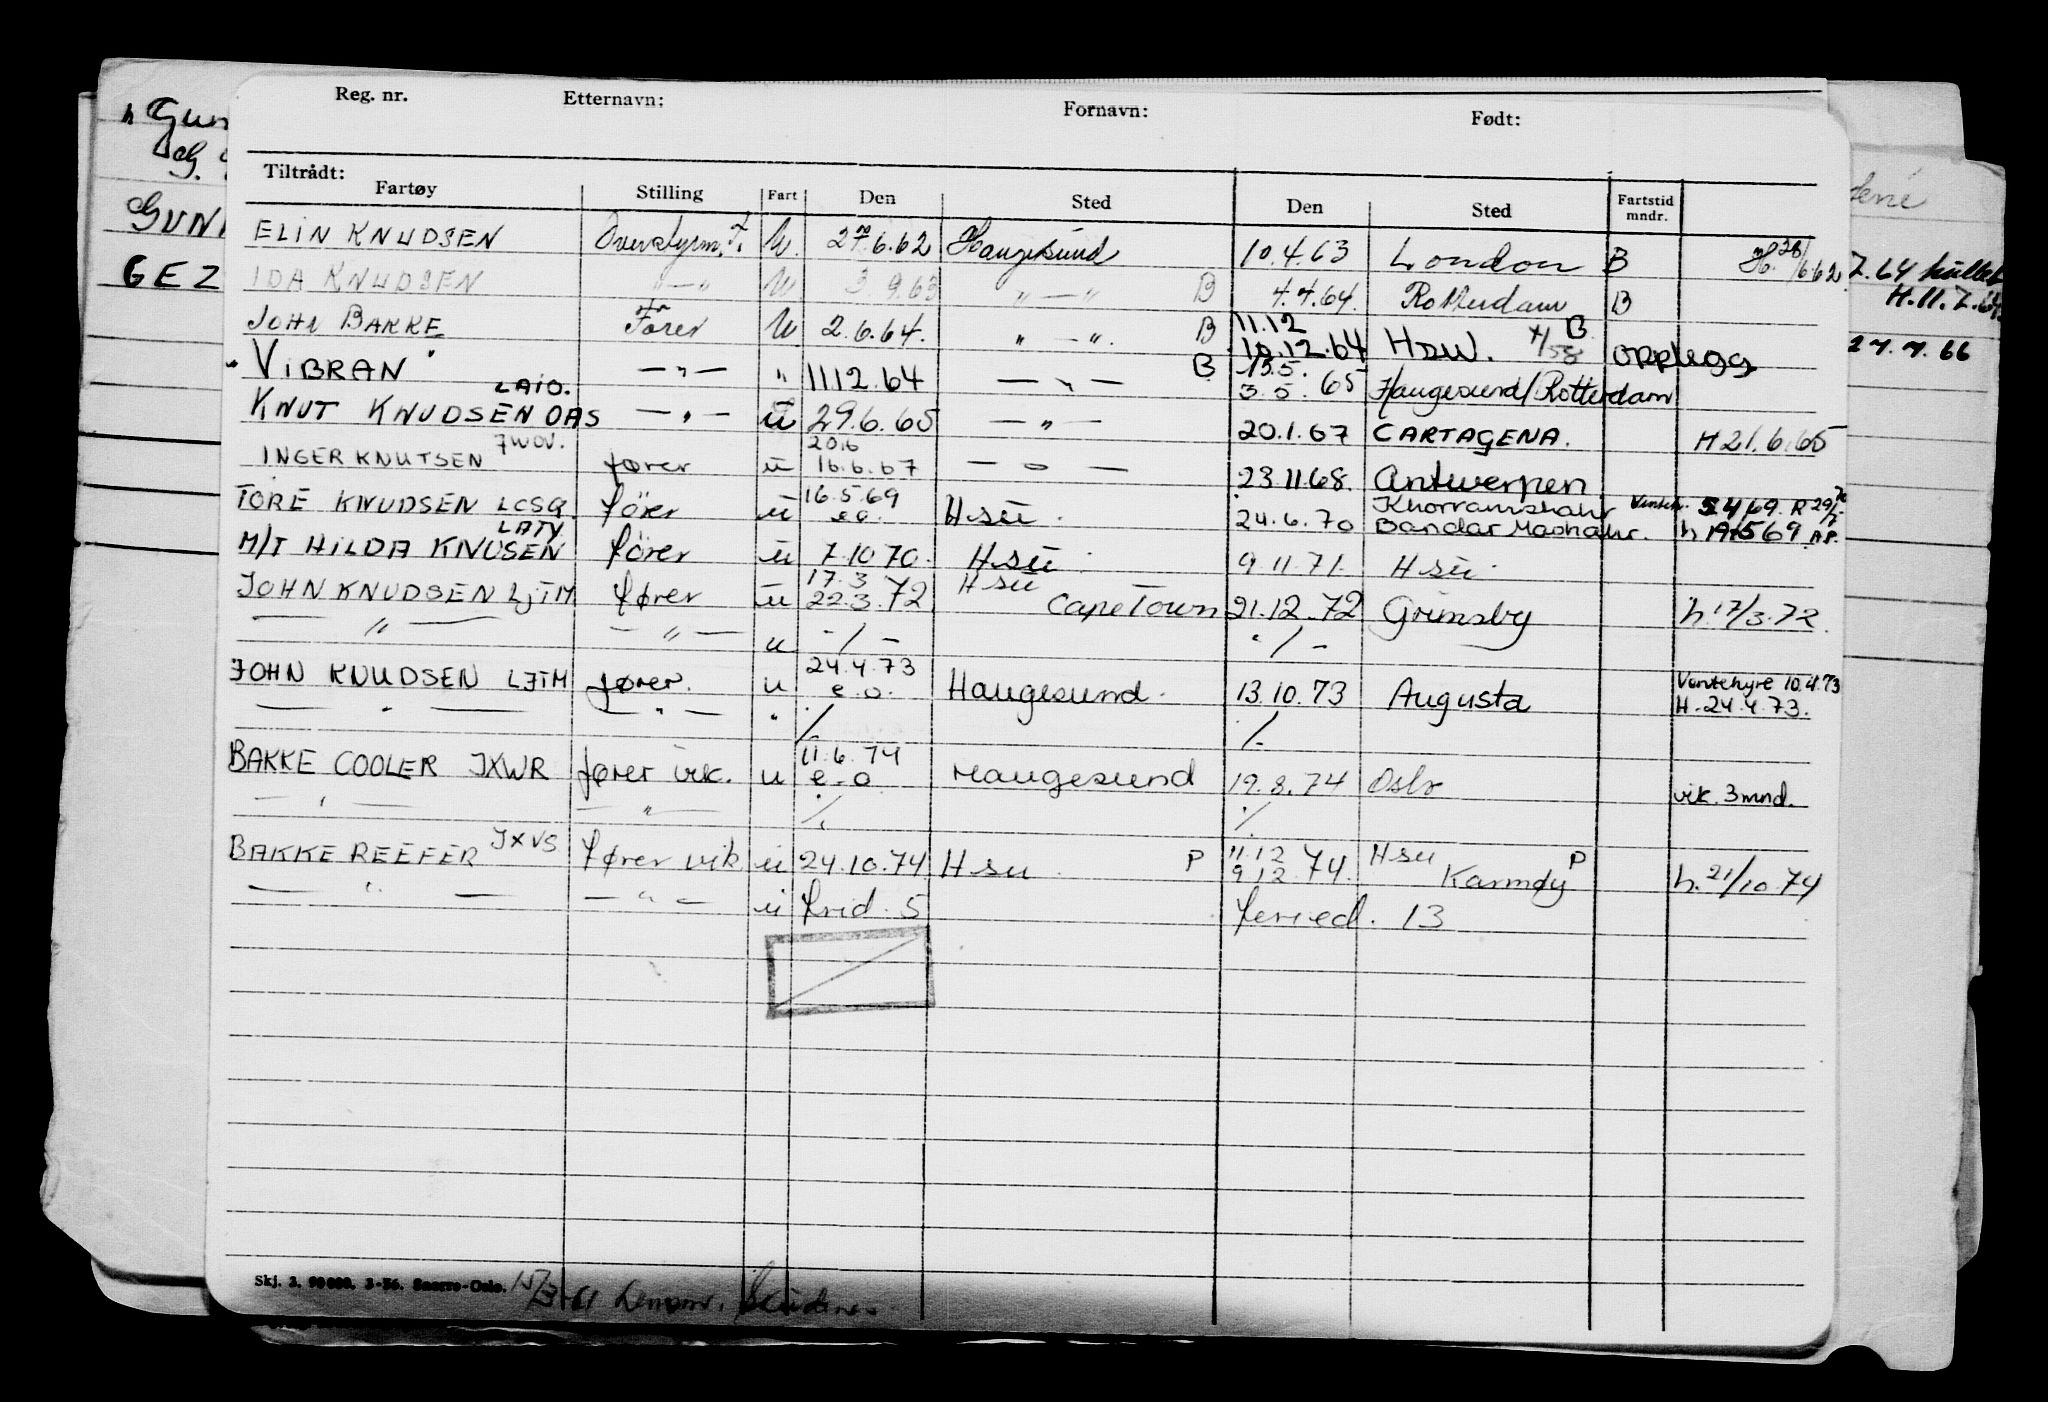 Reg. nr. Etternavn: Fornavn: Født:
Tiltrådt:
Fartøy Stilling Fart Den Sted Den Sted Fartstid mndr.
ELIN KNUDSEN Overstyrm. F. U. 27.6.62 Haugesund 10.4.63 London B H. 26/6.62
IDA KNUDSEN —"— U 3.9.63 "—" B 4.4.64. Rotterdam B
JOHN BAKKE Fører U 2.6.64. "—". B 11.12 10.12.64 HSU. B opplegg
"VIBRAN" —"— " 11.12.64 —"— B 13.5. 3.5.65 Haugesund/Rotterdam
KNUT KNUDSEN OAS LAIO. —"— u 29.6.65 —"— 20.1.67 CARTAGENA. H 21.6.65
INGER KNUTSEN JWOV. fører u 20.6 16.6.67 —"— 23.11.68. Antwerpen
TORE KNUDSEN LCSQ. fører u 16.5.69 e.o. Hsu. 24.6.70 Khorramshahr Bandar Mashahr.
M/T HILDA KNUSEN LATY fører u 7.10.70. Hsu. 9.11.71. Hsu.
JOHN KNUDSEN LJTM fører u 17.3 22.3.72 Hsu Cape Town 21.12.72 Grimsby h. 17/3.72.
—"— —"— u -/- ./-
JOHN KNUDSEN LJTM fører. u 24.4.73 e.o. Haugesund. 13.10.73 Augusta Ventehyre 10.4.73 H. 24.4.73.
—"— —"— " ./. ./.
BAKKE COOLER JXWR fører vik. u 11.6.74 e.o Haugesund 19.8.74 Oslo vik. 3 mnd.
—"— —"— ./. ./.
BAKKE REEFER JXVS fører vik u 24.10.74 Hsu. P 11.12 9.12.74. Hsu Karmøy P h. 21/10.74
—"— —"— u frid. 5 feried. 13
Skj. 3. 90 000. 3-56. Snorre-Oslo.
GUN
GEZ
H.11.7.64.
27.7.66